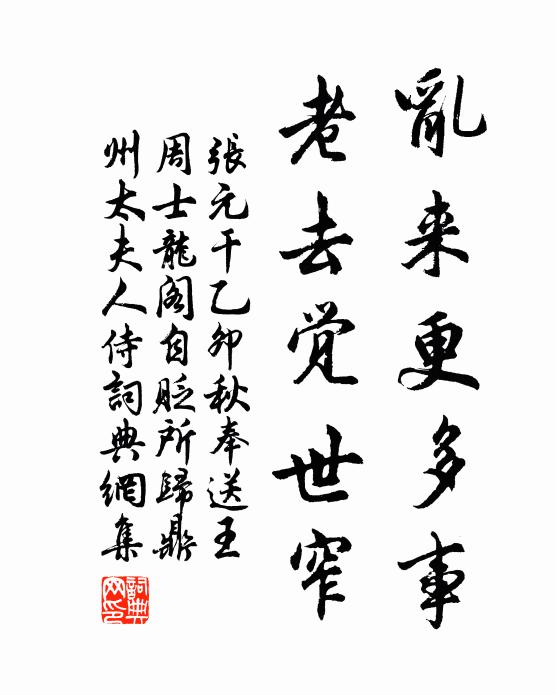 亂来更多事
老去觉世窄
張元干乙卯秋奉送王
周士龍阁自貶所歸鼎
州太夫人侍詞典網集
詞典网印